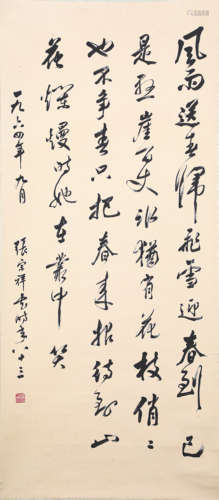 風雨送春歸飛雪迎春到已
是懸崖百丈冰猶有花枝俏〻
也不爭春只把春来報待到山
花爛熳時她在叢中笑
一九六四年九月 張宗祥書時年八十三